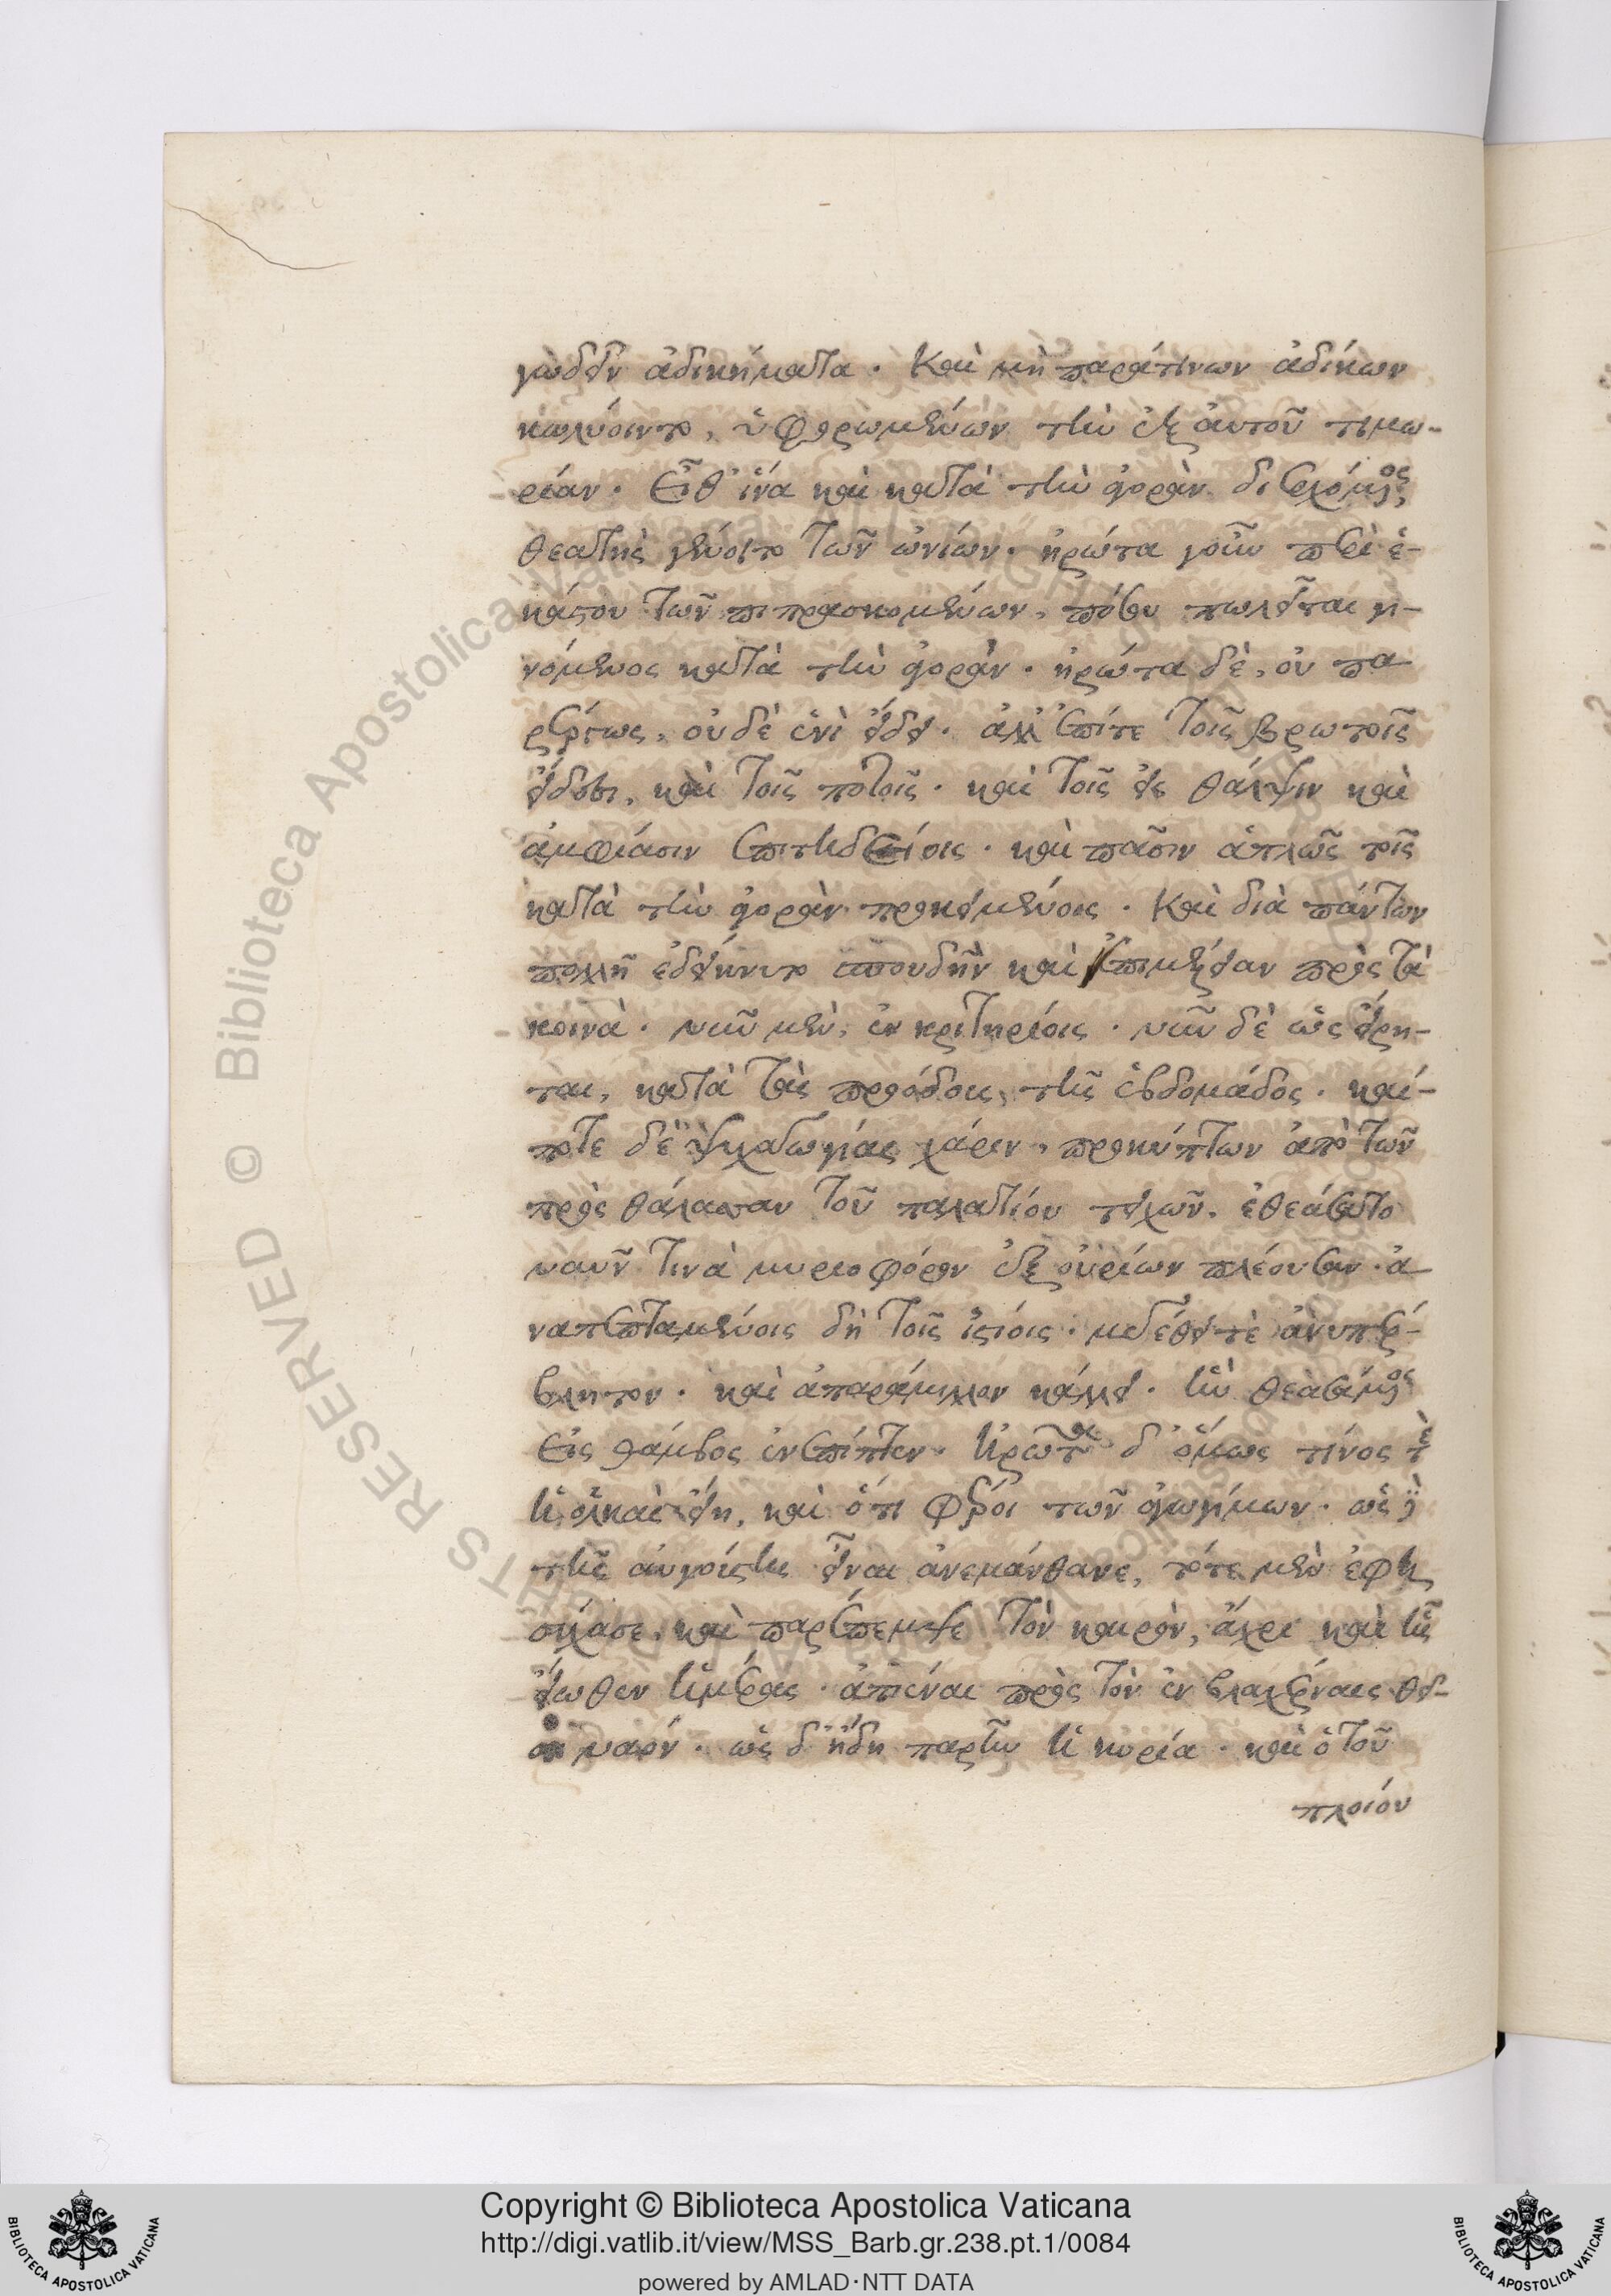 γωδεῖν ἀδικήματα. Καὶ μὴ παράτινων ἀδίκων
κωλύοιντο, ὑφορωμένων τὴν ἐξ αὐτοῦ τιμω-
ρίαν. Εἶθ' ἵνα καὶ κατὰ τὴν ἀγορὰν διερχόμενος,
θεατὴς γένοιτο τῶν ὠνίων. ἠρώτα γοῦν περὶ ἑ-
κάστου τῶν πιπρασκομένων, πόσου πωλεῖται γι-
νόμενος κατὰ τὴν ἀγοράν. ἠρώτα δὲ, οὐ πα
ρέργως, οὐδὲ ἑνὶ εἴδει. ἀλλ' ἐπίτε τοῖς βρωτοῖς
εἴδεσι, καὶ τοῖς ποτοῖς. καὶ τοῖς εἰς θάλψιν καὶ
ἀμφίασιν ἐπιτηδείοις. καὶ πᾶσιν ἁπλῶς τοῖς
κατὰ τὴν ἀγορὰν προκειμένοις. Καὶ διὰ πάντων
πολλὴ ἐδείκνυτο σπουδὴν καὶ ἐπιμέλειαν πρὸς τὰ
κοινὰ. νῦν μὲν, ἐν κριτηρίοις. νῦν δὲ ὡς εἴρη-
ται, κατὰ τὰς προόδους τῆς ἑβδομάδος. καί-
ποτε δὲ ψυχαγωγίας χάριν, προκύπτων ἀπὸ τῶν
πρὸς θάλασσαν τοῦ παλατίου τειχῶν, ἐθεάσατο
ναῦν τινὰ μυριοφόρον ἐξ οὐρίων πλέουσαν. ἀ
ναπεπταμένοις δὴ τοῖς ἱστίοις. μεγέθει τὲ ἀνυπέρ-
βλητον. καὶ ἀπαράμιλλον κάλλει. ἣν θεασάμενος
Εἰς θάμβος ἐνέπιπτεν. ἠρώτα δ' ὅμως τίνος τὲ
ἡ ὁλκὰς εἴη, καὶ ὅτι φέροι τῶν ἀγωγίμων. ὡς δὲ
τῆς αὐγούστης εἶναι ἀνεμάνθανε, τότε μὲν ἐφη
σύχασε, καὶ παρέπεμψε τὸν καιρὸν, ἄχρι καὶ τῆς
εἴωθεν ἡμέρας. ἀπιέναι πρὸς τὸν ἐν βλαχέρναις θεῖ-
ον ναόν. ὡς δ' ἤδη παρῆν ἡ κυρία. καὶ ὁ τοῦ
πλοίου
Copyright © Biblioteca Apostolica Vaticana
http://digi.vatlib.it/view/MSS_Barb.gr.238.pt.1/0084
powered by AMLAD·NTT DATA